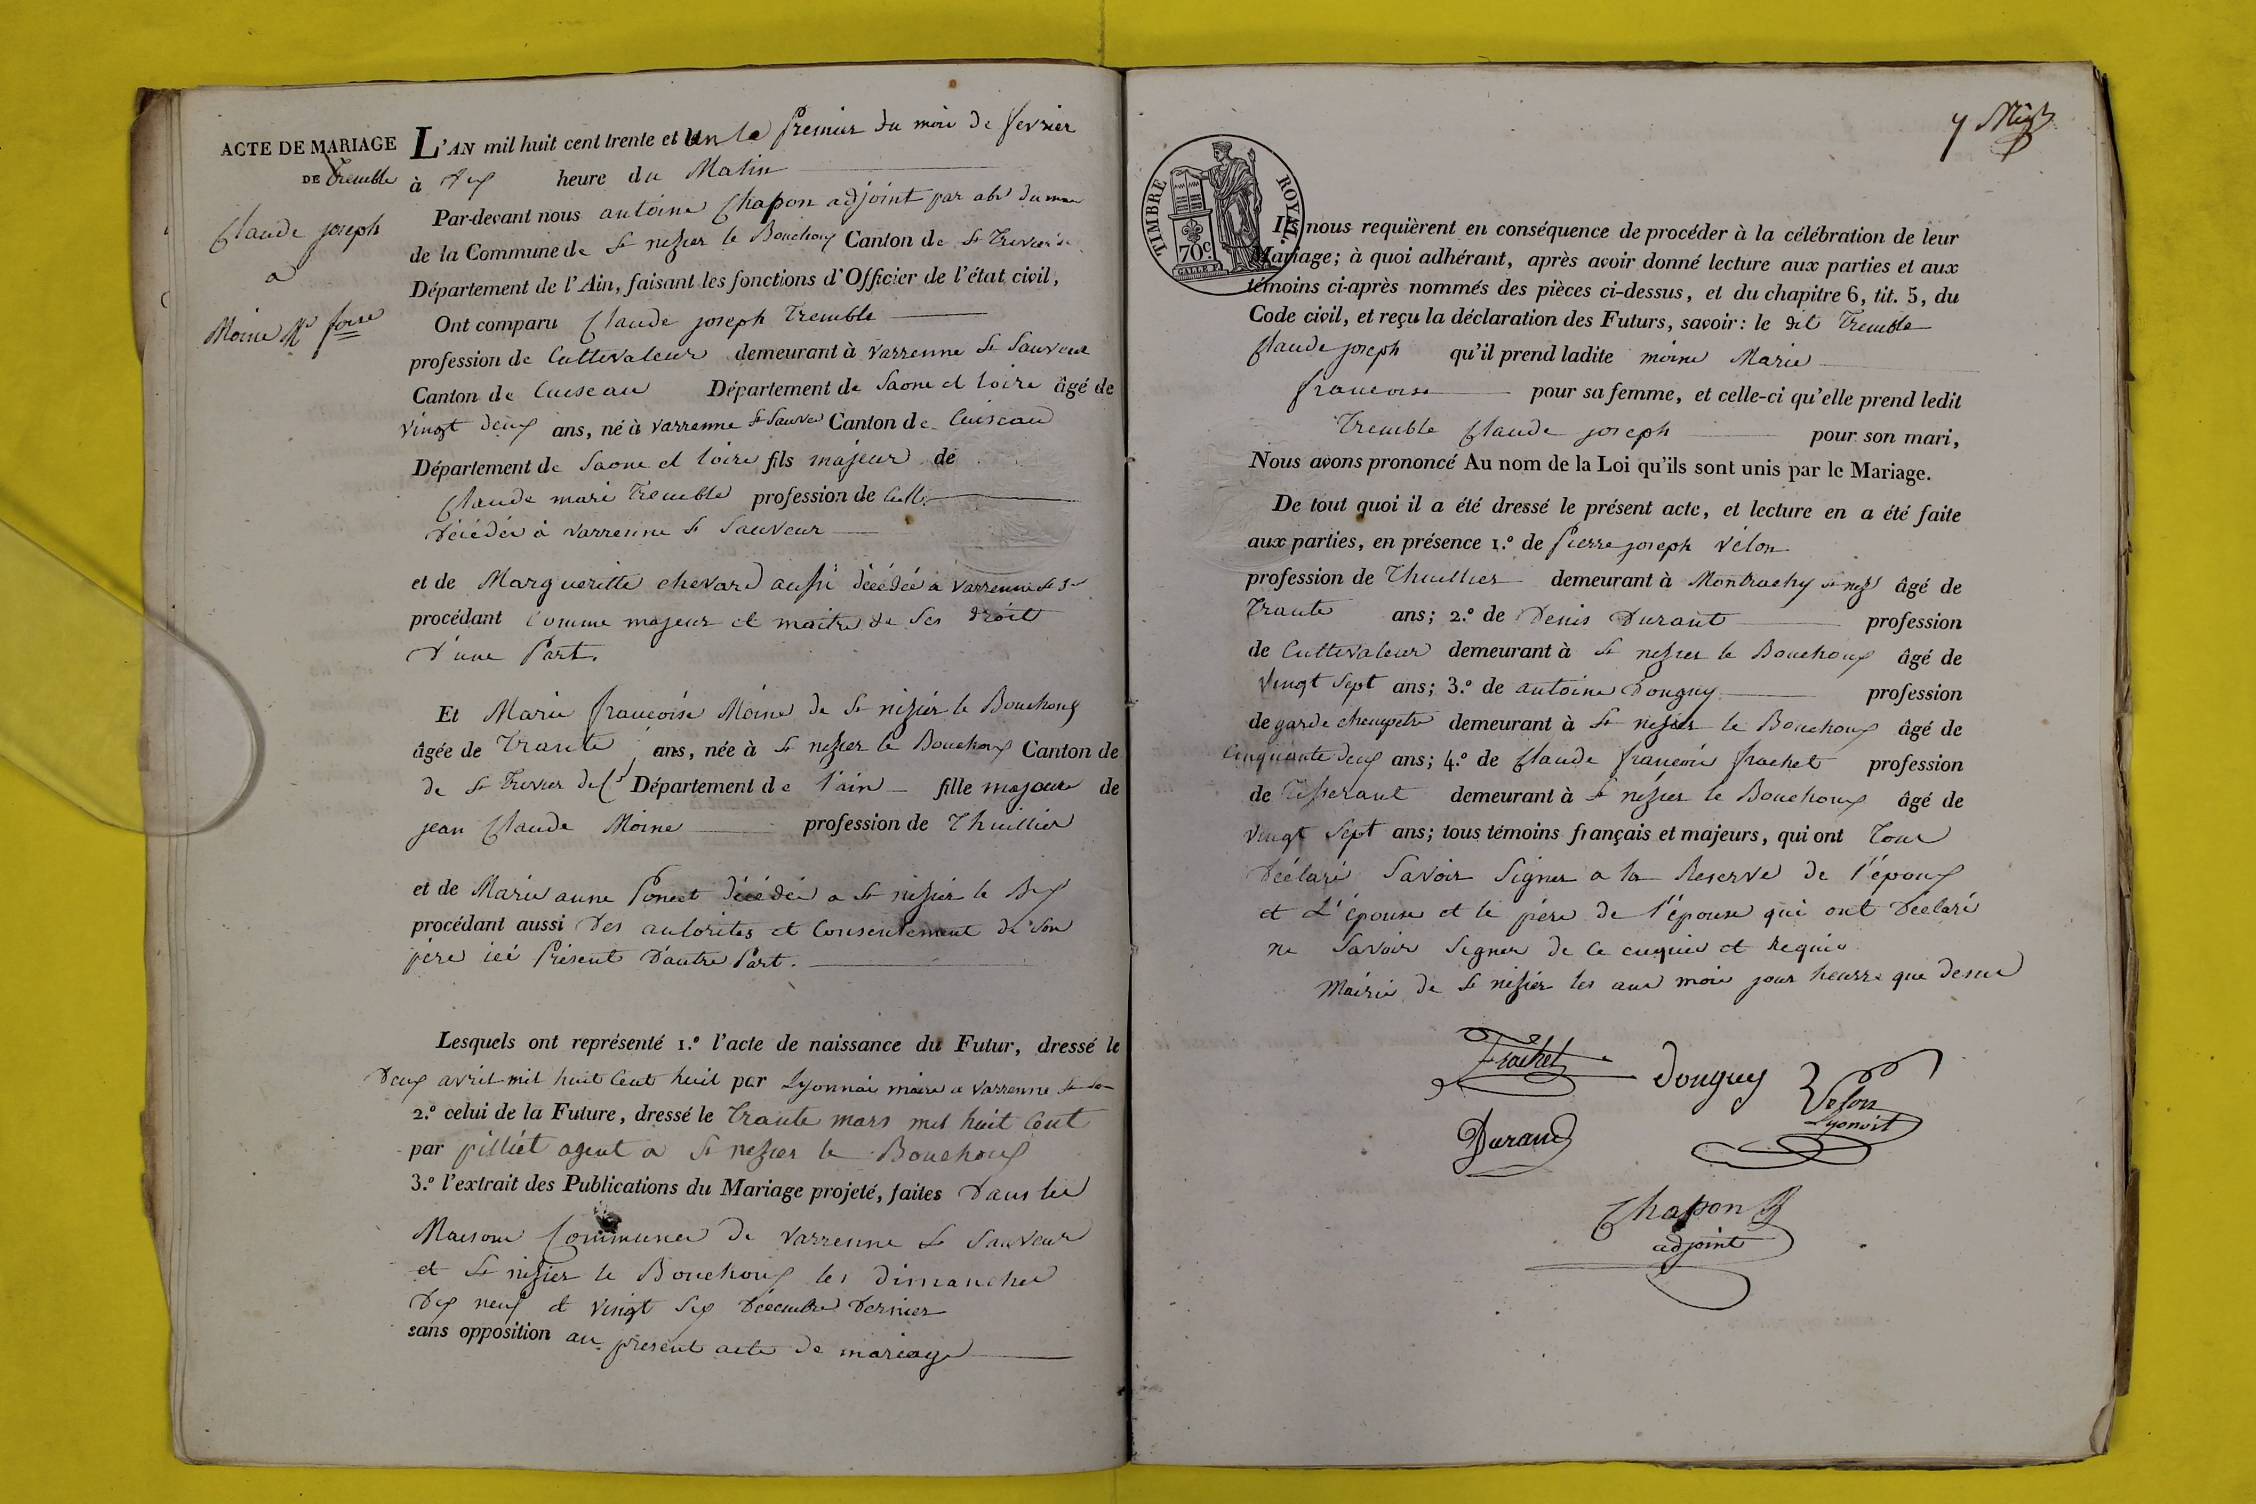 ACTE DE MARIAGE
DE Tremble
Claude joseph
a
Moine Me foise
L'AN mil huit cent trente et un le Premier du moi de fevrier
à dix heure du Matin
Par-devant nous antoine Chapon adjoint par abs du maire
de la Commune de St nizier le Bouchoux Canton de St Trivier
Département de l'Ain, faisant les fonctions d'Officier de l'état civil,
Ont comparu Claude joseph Tremble
profession de Cultivateur demeurant à varrenne St Sauveur
Canton de Cuiseau Département de Saone et loire âgé de
vingt deux ans, né à varrenne St Sauveur Canton de Cuiseau
Département de Saone et loire fils majeur de
Claude marie Tremble profession de Cult
décédée à varrenne St Sauveur
et de Margueritte chevard aussi décédée a varrenne St Sr
procédant Comme majeur et maitre de Ses droits
D'une Part.
Et Marie francoise Moine de St nizier le Bouchoux
âgée de Trante ans, née à St nizier le Bouchoux Canton de
de St Trivier de Cs Département de l'ain fille majeure de
jean Claude Moine profession de Thuillier
et de Marie anne Poncet décédée a St nizier le Bx
procédant aussi Des autorites et Consentement de Son
père ici Présent D'autre Part.
Lesquels ont représenté 1.º l'acte de naissance du Futur, dressé le
Deux avril mil huit Cent huit par Lyonnai maire a varrenne St Sr
2.º celui de la Future, dressé le Trante mars mil huit Cent
par pilliet agent a St nizier le Bouchoux
3.º l'extrait des Publications du Mariage projeté, faites Dans les
Maisons Communes de varrenne St Sauveur
et St nizier le Bouchoux les dimanches
Dix neuf et vingt Six Décembre Dernier
sans opposition au présent acte de mariage
7
TIMBRE ROYAL.
70 c.
Ils nous requièrent en conséquence de procéder à la célébration de leur
Mariage; à quoi adhérant, après avoir donné lecture aux parties et aux
témoins ci-après nommés des pièces ci-dessus, et du chapitre 6, tit. 5, du
Code civil, et reçu la déclaration des Futurs, savoir: le dit Tremble
Claude joseph qu'il prend ladite moine Marie
francoise pour sa femme, et celle-ci qu'elle prend ledit
Tremble Claude joseph pour son mari,
Nous avons prononcé Au nom de la Loi qu'ils sont unis par le Mariage.
De tout quoi il a été dressé le présent acte, et lecture en a été faite
aux parties, en présence 1.º de Pierre joseph Vélon
profession de Thuillier demeurant à Montrachy St nezr âgé de
Trante ans; 2.º de Denis Durant profession
de Cultivateur demeurant à St nezier le Bouchoux âgé de
Vingt Sept ans; 3.º de antoine Donguy profession
de garde champetre demeurant à St nezier le Bouchoux âgé de
Cinquante deux ans; 4.º de Claude francois frachet profession
de Tisserant demeurant à St nézier le Bouchoux âgé de
vingt Sept ans; tous témoins français et majeurs, qui ont Tous
Déclaré Savoir Signer a la Reserve de l'époux
et L'épouse et le père de l'épouse qui ont Déclaré
ne Savoir Signer de ce enquis et Requis
Mairie de St nizier les ans moi jour heurre que dessus
Frachet Donguy Velon
Lyonoit
Durand
Chapon
adjoint